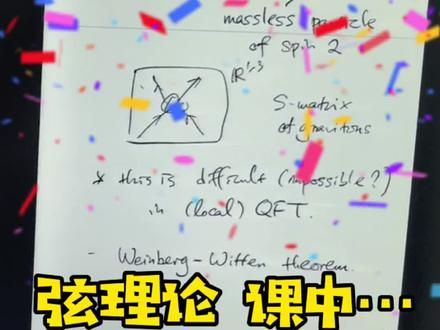 massless particle
of spin 2
ℝ¹,³
S-matrix
of gravitons
* this is difficult (impossible?)
in (local) QFT.
- Weinberg-Witten theorem.
弦理论 课中…